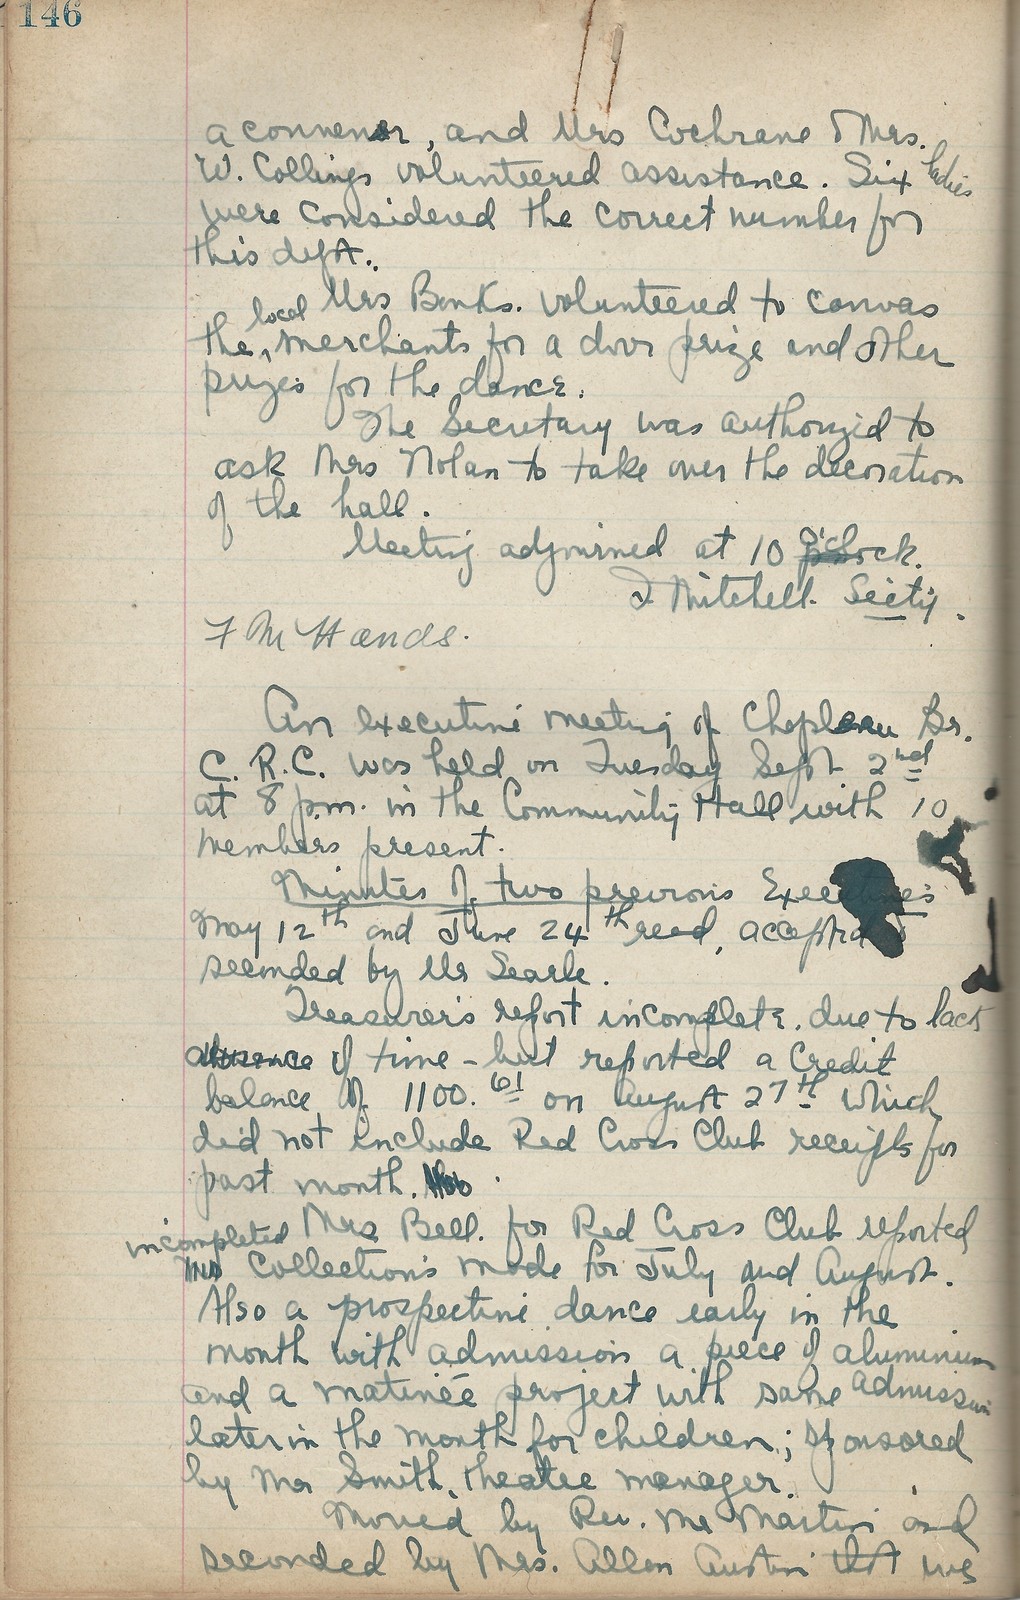 146
a convener, and Mrs Cochrane & Mrs.
W. Collings volunteered assistance. Six ladies
were considered the correct number for
this dept.
Mrs Banks. volunteered to canvas
the local merchants for a door prize and other
prizes for the dance.
The Secretary was authorized to
ask Mrs Nolan to take over the decoration
of the hall.
Meeting adjourned at 10 o'clock.
I Mitchell. Sec'ty.
F M Hands.
An executive meeting of Chapleau Br.
C. R.C. was held on Tuesday Sept 2nd
at 8 p.m. in the Community Hall with 10
members present.
Minutes of two previous Executives
May 12th and June 24th read, accepted
seconded by Mr Searle.
Treasurer's report incomplete. due to lack
of time - but reported a Credit
balance of 1100.61 on August 27th which
did not include Red Cross Club receipts for
past month.
Mrs Bell. for Red Cross Club reported
incompleted collections made for July and August.
Also a prospective dance early in the
month with admission a piece of aluminium
and a matinée project with same admission
later in the month for children; sponsored
by Mr Smith, theatre manager.
Moved by Rev. Mr Martin and
seconded by Mrs. Allan Austin that we